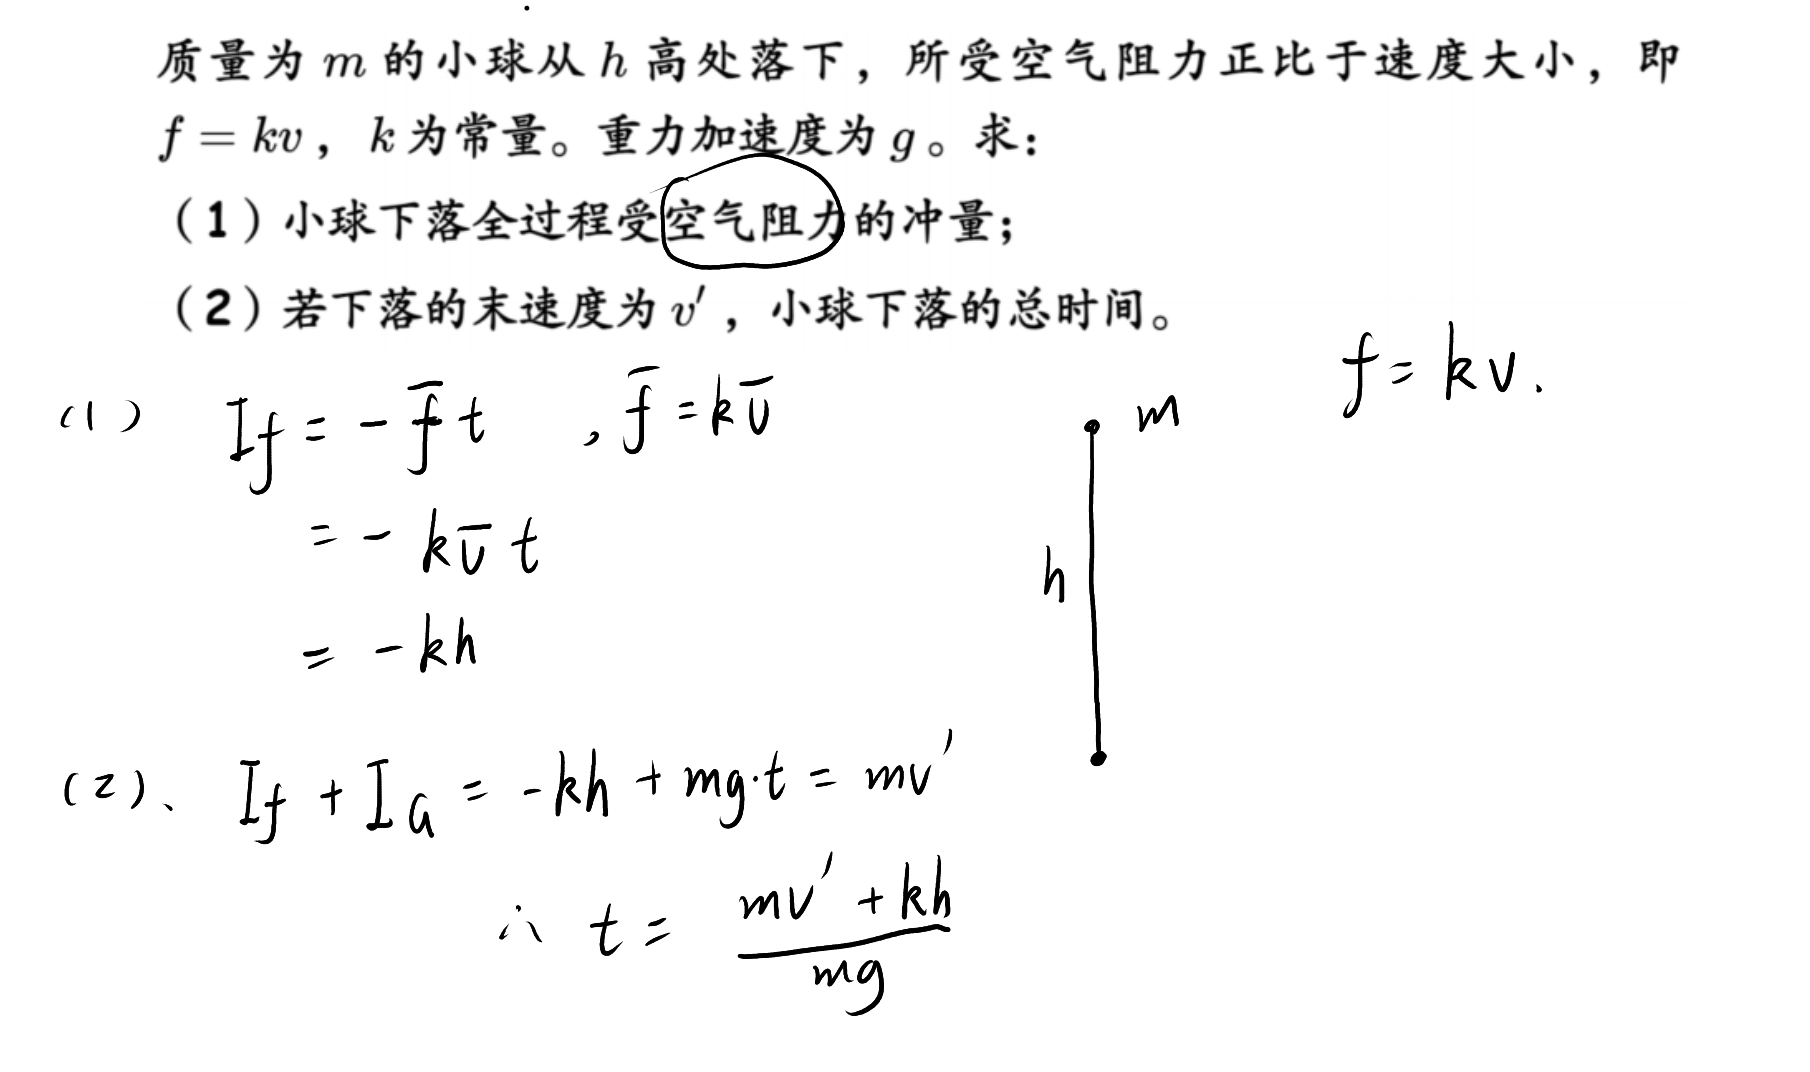 质量为 m 的小球从 h 高处落下，所受空气阻力正比于速度大小，即
f = kv，k 为常量。重力加速度为 g。求：
（1）小球下落全过程受空气阻力的冲量；
（2）若下落的末速度为 v′，小球下落的总时间。
f = kv.
(1) I_f = - f̄ t , f̄ = kv̄
= - kv̄ t
= - kh
m
h
(2)、 I_f + I_G = -kh + mg·t = mv′
∴ t = \frac{mv′ + kh}{mg}